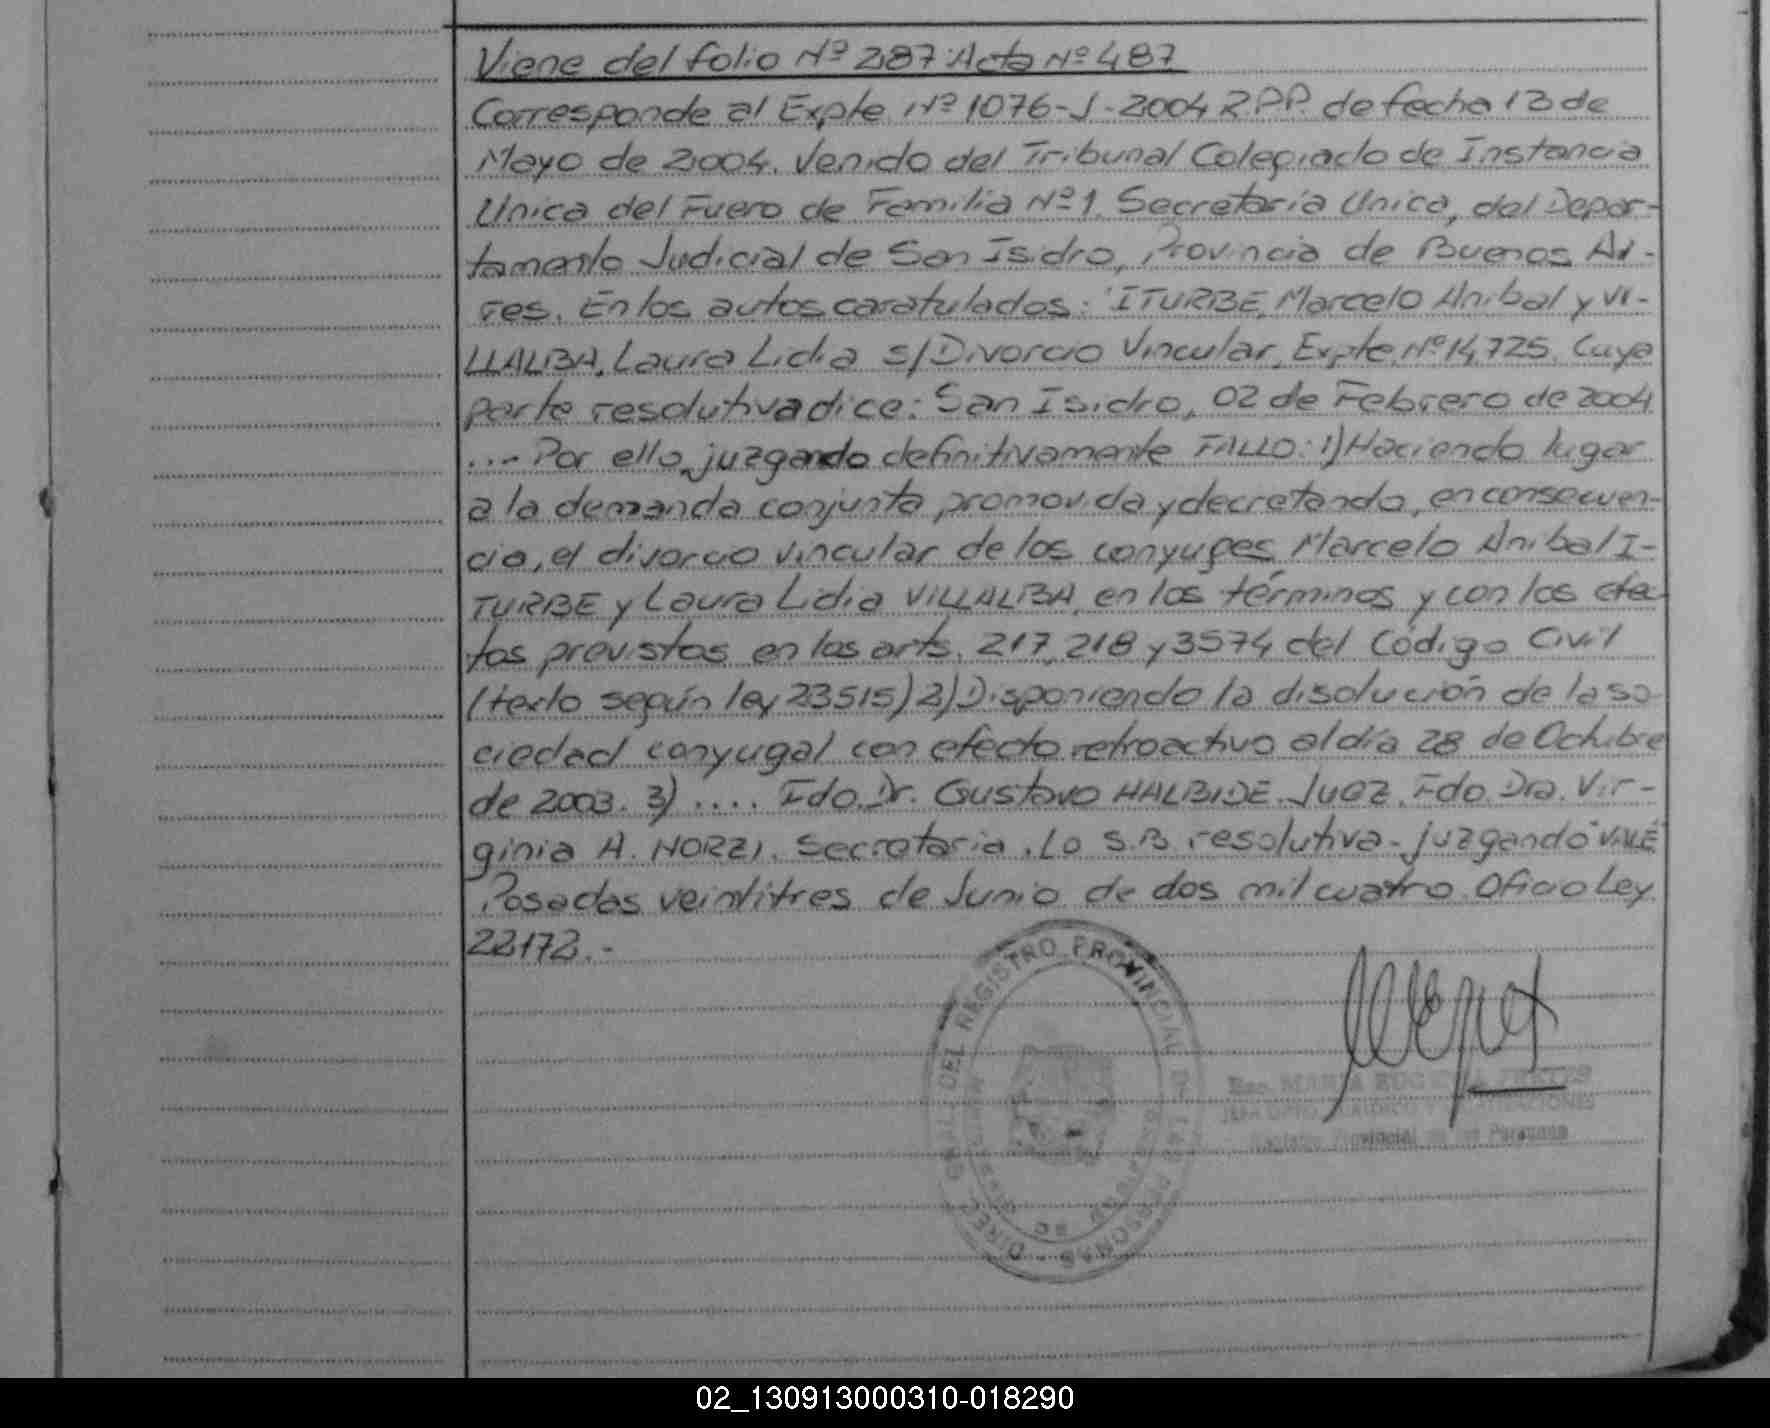 Viene del folio Nº 287 Acta Nº 487
Corresponde al Expte Nº 1076-J-2004 R.P.P. de fecha 13 de
Mayo de 2004. Venido del Tribunal Colegiado de Instancia
Unica del Fuero de Familia Nº 1. Secretaría Unica, del Depar-
tamento Judicial de San Isidro, Provincia de Buenos Ai-
res. En los autos caratulados: "ITURBE, Marcelo Anibal y VI-
LLALBA, Laura Lidia s/Divorcio Vincular, Expte. Nº 14.725. Cuya
parte resolutiva dice: San Isidro, 02 de Febrero de 2004
... Por ello, juzgando definitivamente FALLO: 1) Haciendo lugar
a la demanda conjunta promovida y decretando, en consecuen-
cia, el divorcio vincular de los conyuges Marcelo Anibal I-
TURBE y Laura Lidia VILLALBA, en los términos y con los efec
tos previstos en los arts. 217, 218 y 3574 del Código Civil
(texto según ley 23515) 2) Disponiendo la disolución de la so-
ciedad conyugal con efecto retroactivo al día 28 de Octubre
de 2003. 3) .... Fdo. Dr. Gustavo HALBIDE. Juez. Fdo. Dra. Vir-
ginia A. NORZI. Secretaria. Lo S.B. resolutiva-juzgando "VALE"
Posadas veintitres de Junio de dos mil cuatro. Oficio Ley
22172.-
DIREC. GRAL. DEL REGISTRO PROVINCIAL DE LAS PERSONAS
Esc. MARIA EUGENIA
JEFA DPTO. JURIDICO Y
Registro Provincial de las Personas
02_130913000310-018290